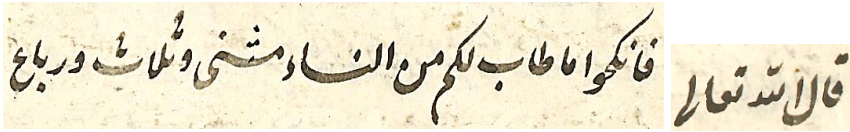 قال الله تعالى
فانكحوا ما طاب لكم من النساء مثنى وثلاث ورباع